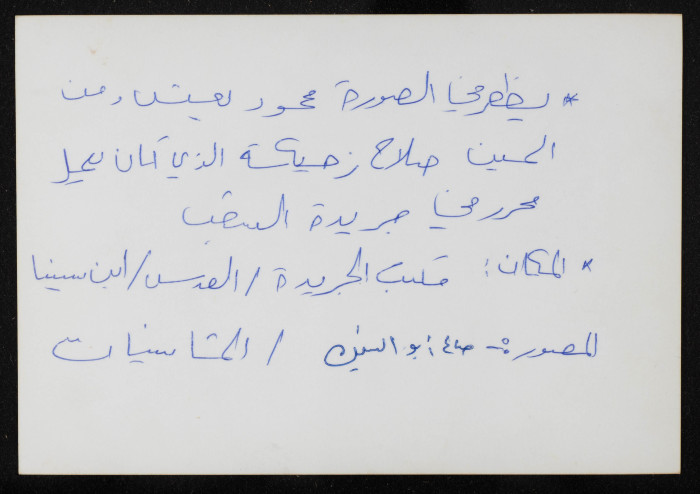 * يظهر في الصورة محمود يعيش ومن
اليمين صلاح زحيكة الذي كان يعمل
محرر في جريدة الشعب
* المكان: مكتب الجريدة / القدس / ابن سينا
المصور:- أبو / الثمانينات